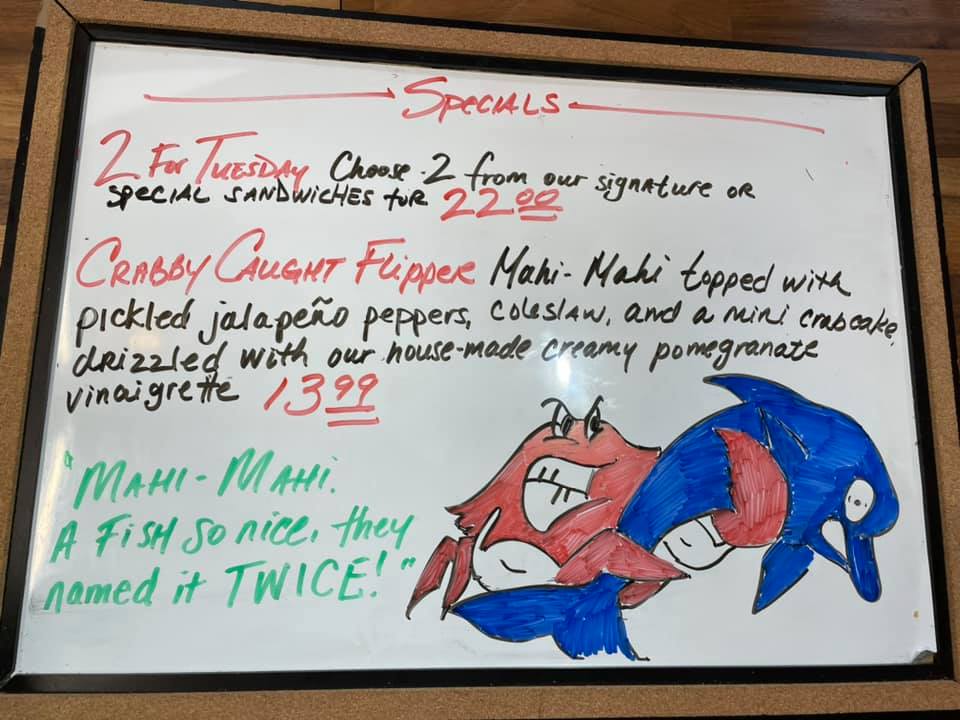 Specials
2 For Tuesday Choose 2 from our signature or
special sandwiches for 22.00
Crabby Caught Flipper Mahi-Mahi topped with
pickled jalapeño peppers, coleslaw, and a mini crabcake,
drizzled with our house-made creamy pomegranate
vinaigrette 13.99
"Mahi-Mahi.
A Fish so nice, they
named it TWICE!"